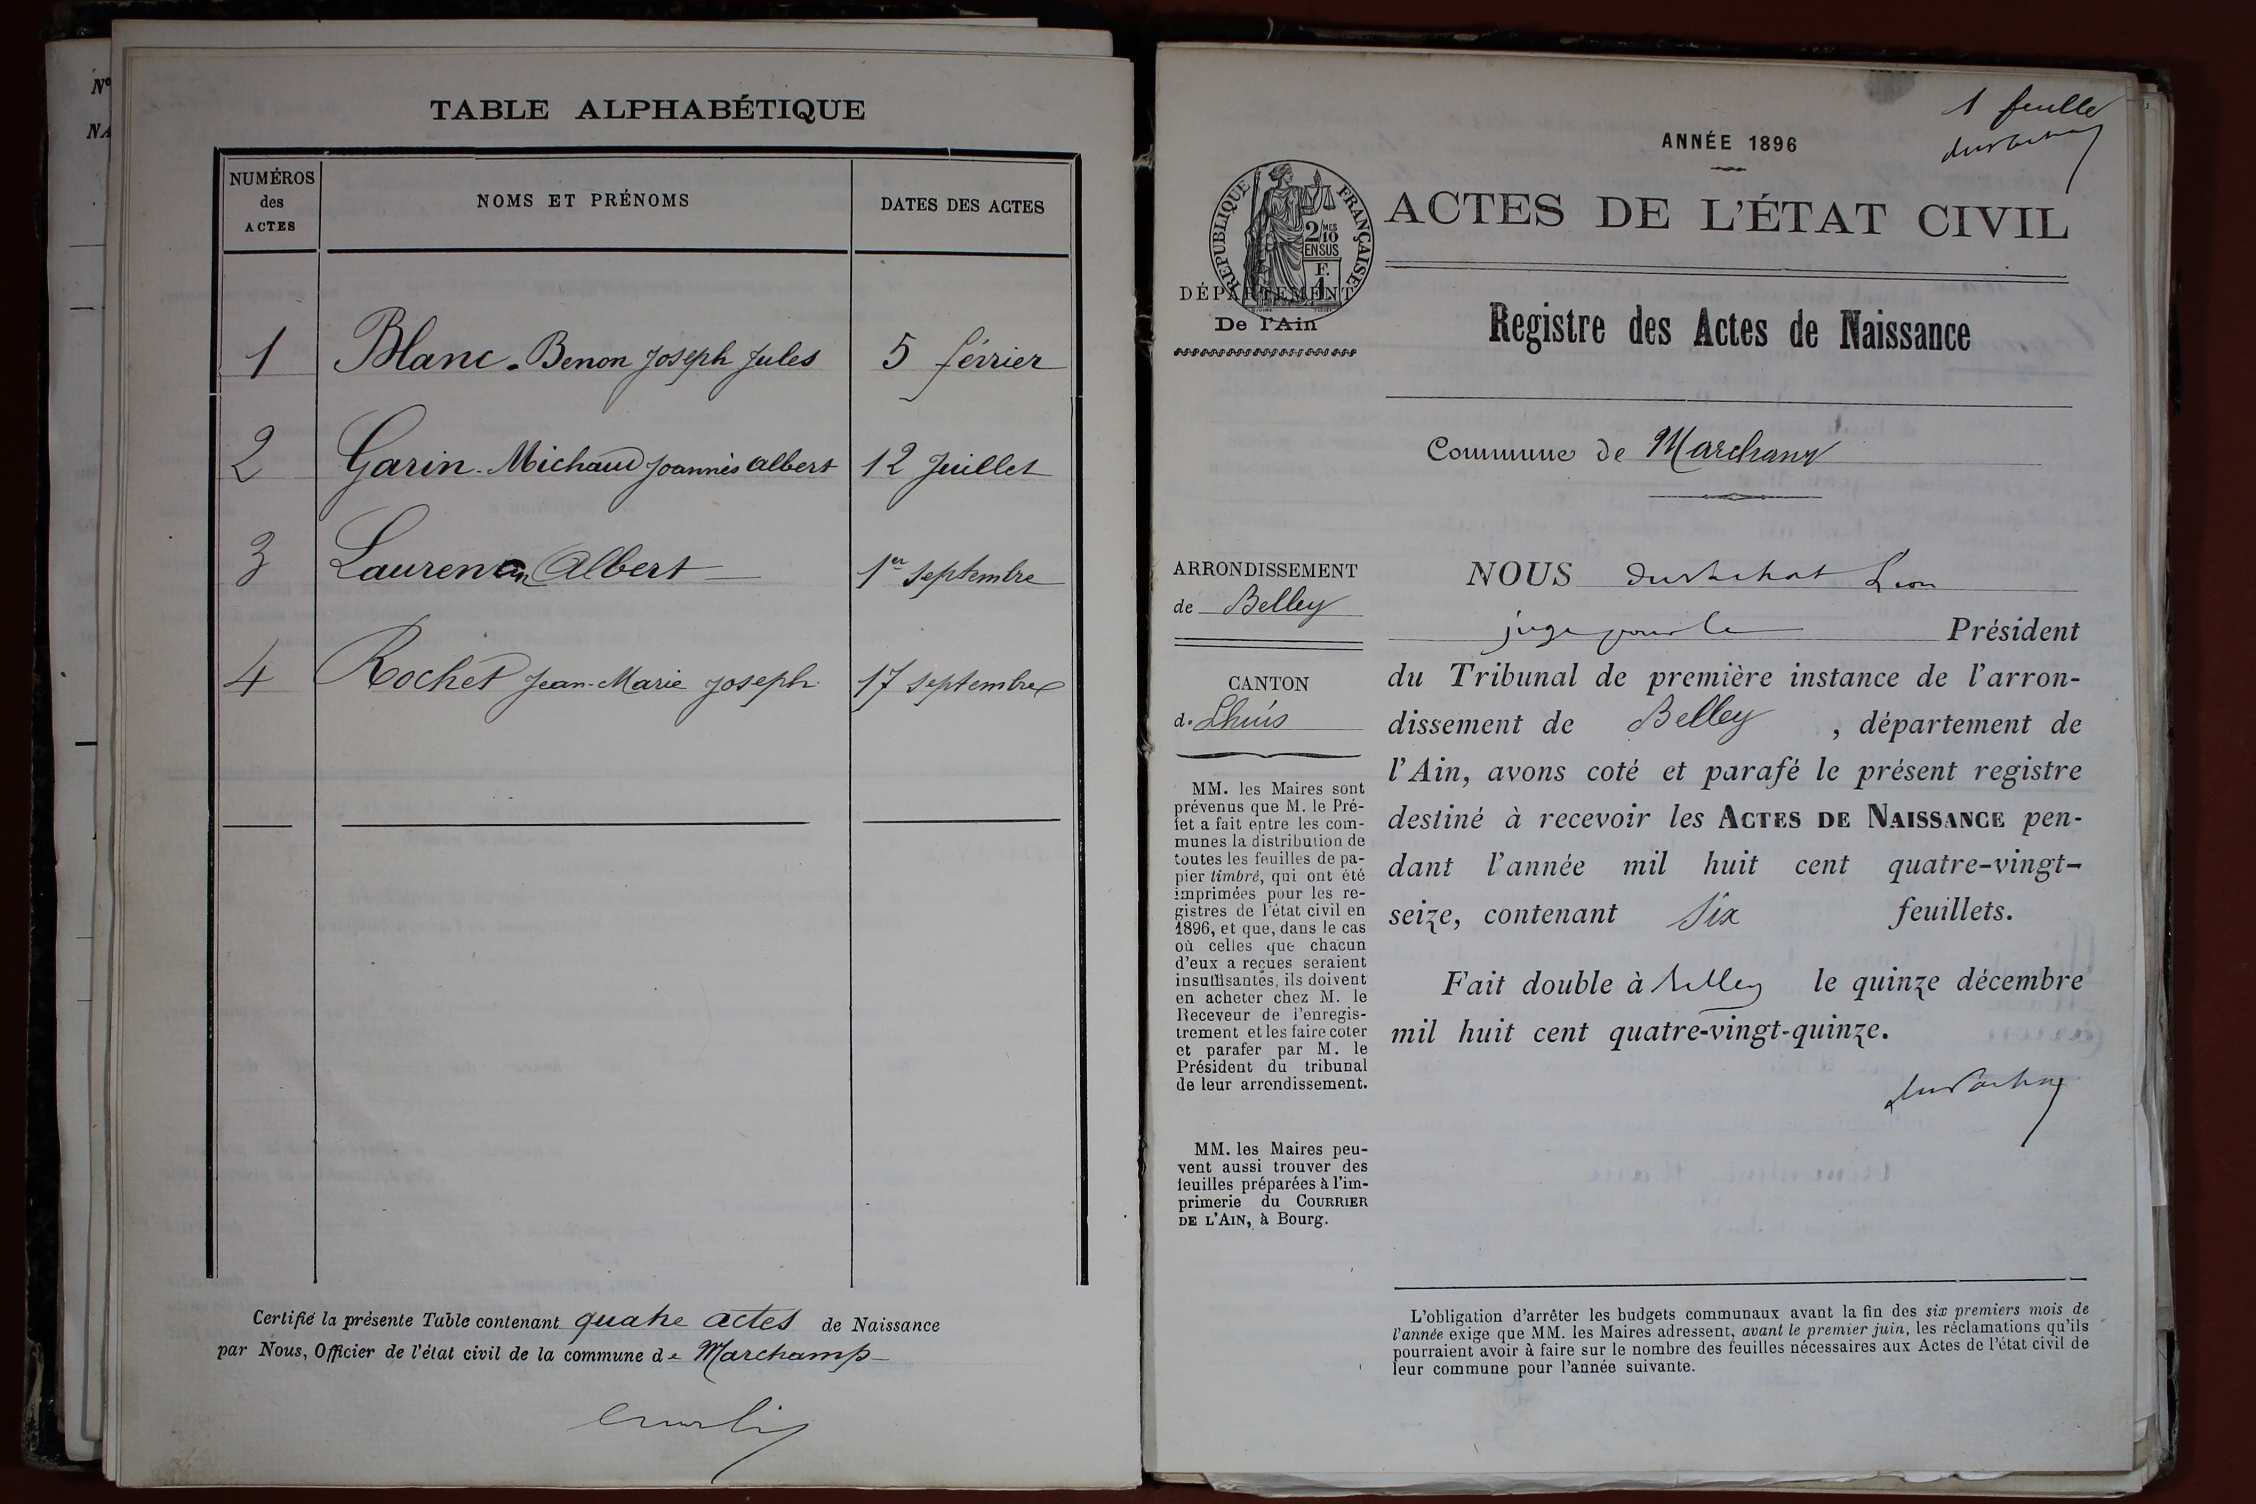 Nº
NA
TABLE ALPHABÉTIQUE
NUMÉROS des ACTES
NOMS ET PRÉNOMS
DATES DES ACTES
1 Blanc-Benon Joseph Jules 5 février
2 Garin-Michaud Joannès Albert 12 Juillet
3 Laurencin Albert 1er septembre
4 Rochet Jean-Marie Joseph 17 septembre
Certifié la présente Table contenant quatre actes de Naissance
par Nous, Officier de l'état civil de la commune de Marchamp
1 feuille
ANNÉE 1896
ACTES DE L'ÉTAT CIVIL
RÉPUBLIQUE FRANÇAISE
2/10 MES
EN SUS
F.
1
DÉPARTEMENT
De l'Ain
Registre des Actes de Naissance
Commune de Marchamp
ARRONDISSEMENT
de Belley
CANTON
de Lhuis
MM. les Maires sont
prévenus que M. le Pré-
fet a fait entre les com-
munes la distribution de
toutes les feuilles de pa-
pier timbré, qui ont été
imprimées pour les re-
gistres de l'état civil en
1896, et que, dans le cas
où celles que chacun
d'eux a reçues seraient
insuffisantes, ils doivent
en acheter chez M. le
Receveur de l'enregis-
trement et les faire coter
et parafer par M. le
Président du tribunal
de leur arrondissement.
MM. les Maires peu-
vent aussi trouver des
feuilles préparées à l'im-
primerie du COURRIER
DE L'AIN, à Bourg.
NOUS Léon
juge pour le Président
du Tribunal de première instance de l'arron-
dissement de Belley, département de
l'Ain, avons coté et parafé le présent registre
destiné à recevoir les ACTES DE NAISSANCE pen-
dant l'année mil huit cent quatre-vingt-
seize, contenant Six feuillets.
Fait double à Belley le quinze décembre
mil huit cent quatre-vingt-quinze.
L'obligation d'arrêter les budgets communaux avant la fin des six premiers mois de
l'année exige que MM. les Maires adressent, avant le premier juin, les réclamations qu'ils
pourraient avoir à faire sur le nombre des feuilles nécessaires aux Actes de l'état civil de
leur commune pour l'année suivante.